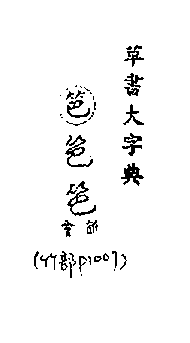 草書大字典
笆
笆
笆
(竹部P1007)